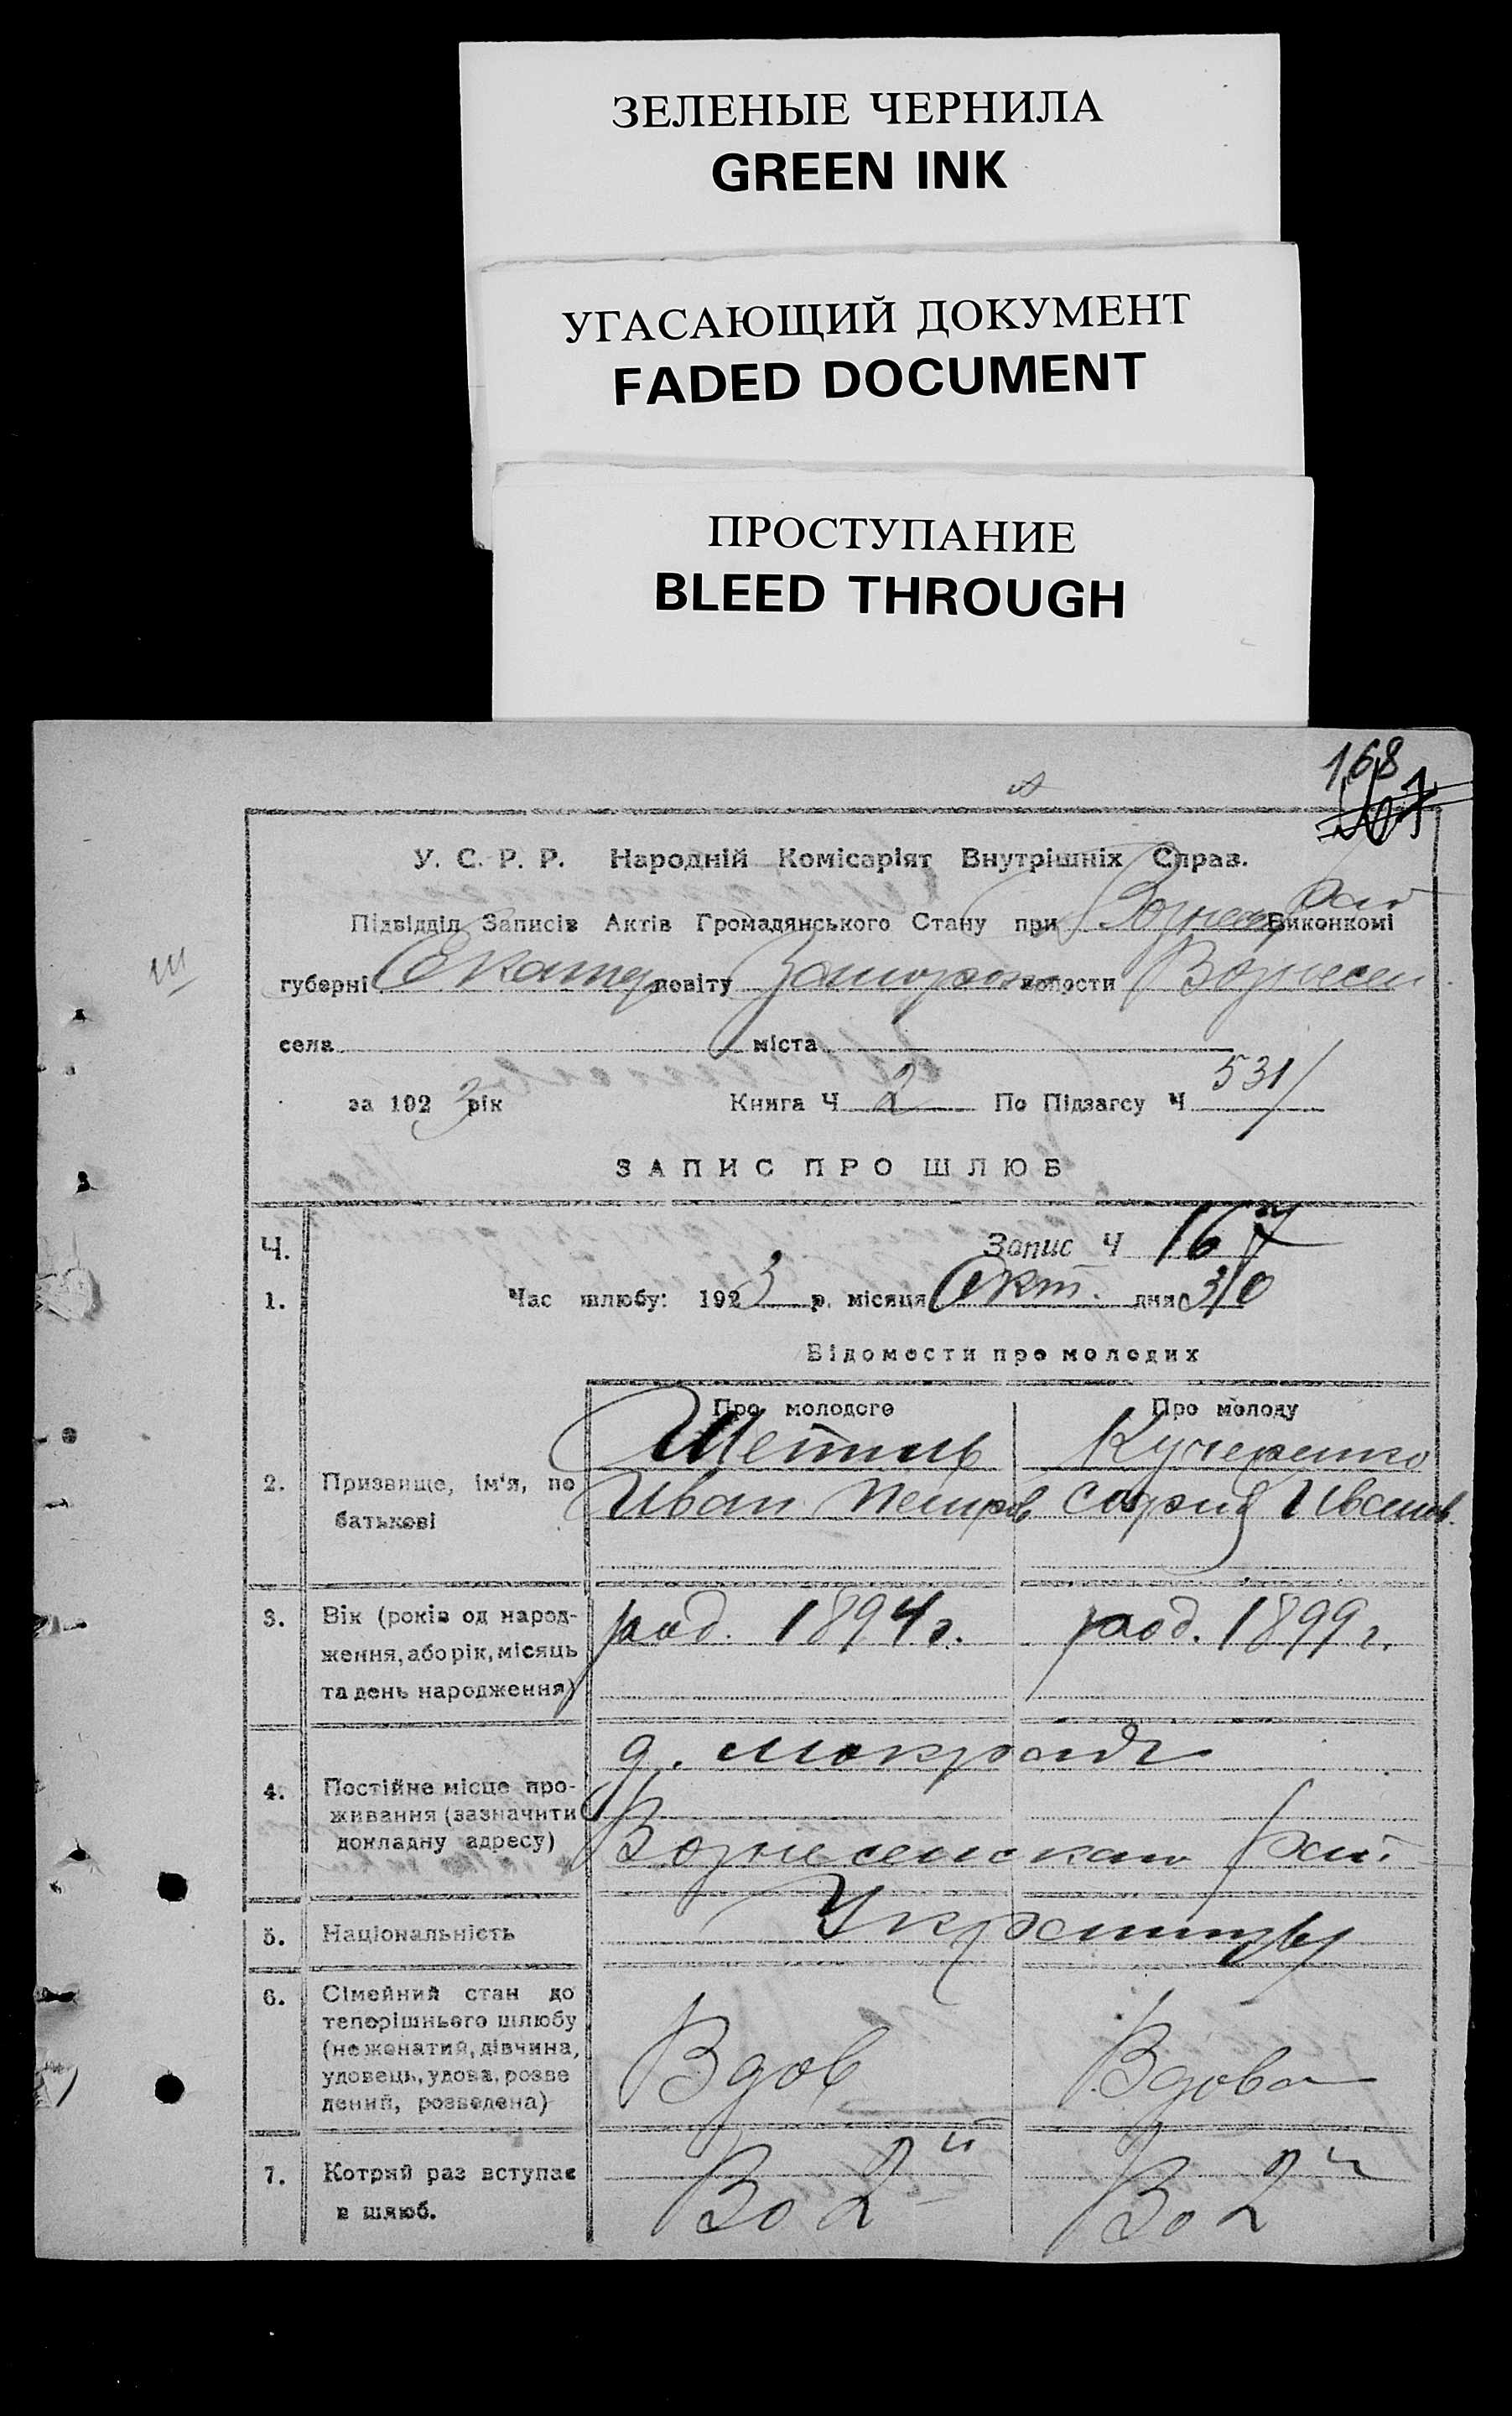 ЗЕЛЕНЫЕ ЧЕРНИЛА
GREEN INK
УГАСАЮЩИЙ ДОКУМЕНТ
FADED DOCUMENT
ПРОСТУПАНИЕ
BLEED THROUGH
168
У. С. Р. Р. Народній Комісаріят Внутрішніх Справ.
Підвідділ Записів Актів Громадянського Стану при Вознесен Виконкомі
губерні Екатер повіту Запорож волости Вознесен
села міста
за 1923 рік Книга Ч 2 По Підзагсу Ч 531
ЗАПИС ПРО ШЛЮБ
Ч. Запис Ч 167
1. Час шлюбу: 1923 р. місяця Окт. дня 30
Відомости про молодих
Про молодого Про молоду
Кучеренко
2. Призвище, ім'я, по батькові Иван Петров София Иванов.
3. Вік (років од народ-
ження, або рік, місяць
та день народження) род. 1894 г. род. 1899 г.
4. Постійне місце про-
живання (зазначити
докладну адресу)
Вознесенская
5. Національність Украинцы
6. Сімейний стан до
теперішнього шлюбу
(не женатий, дівчина,
удовець, удова, розве
дений, розведена) Вдов Вдова
7. Котрий раз вступає
в шлюб. Во 2й Во 2й